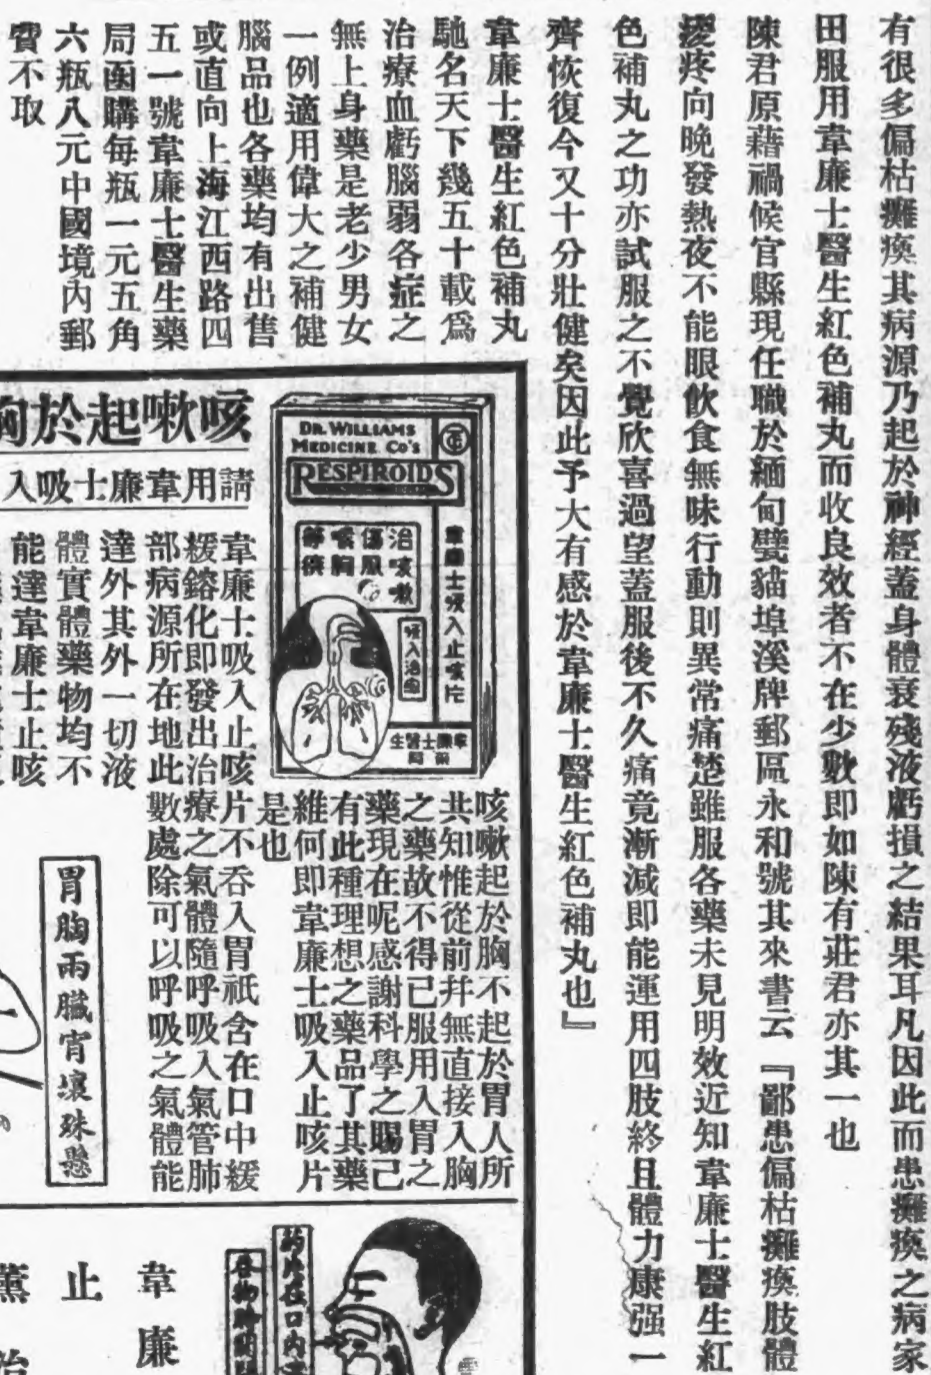 有很多偏枯癱瘓其病源乃起於神經蓋身體衰殘液虧損之結果耳凡因此而患癱瘓之病家
田服用韋廉士醫生紅色補丸而收良效者不在少數即如陳有莊君亦其一也
陳君原藉禍候官縣現任職於緬甸甓貓埠溪牌郵區永和號其來書云『鄙患偏枯癱瘓肢體
痠疼向晚發熱夜不能眼飲食無味行動則異常痛楚雖服各藥未見明效近知韋廉士醫生紅
色補丸之功亦試服之不覺欣喜過望蓋服後不久痛竟漸減即能運用四肢終且體力康强一
齊恢復今又十分壯健矣因此予大有感於韋廉士醫生紅色補丸也』
韋廉士醫生紅色補丸
馳名天下幾五十載爲
治療血虧腦弱各症之
無上身藥是老少男女
一例適用偉大之補健
腦品也各藥均有出售
或直向上海江西路四
五一號韋廉士醫生藥
局函購每瓶一元五角
六瓶八元中國境內郵
費不取
咳嗽起於胸
請用韋廉士吸入
DR. WILLIAMS
MEDICINE Co's
RESPIROIDS
治咳嗽
傷風
咳胸
韋廉士吸入止咳片
吸入治療
韋廉士醫生
藥局
咳嗽起於胸不起於胃人所
共知惟從前幷無直接入胸
之藥故不得已服用入胃之
藥現在呢感謝科學之賜已
有此種理想之藥品了其藥
維何即韋廉士吸入止咳片
是也
韋廉士吸入止咳片不吞入胃祇含在口中緩
緩鎔化即發出治療之氣體隨呼吸入氣管肺
部病源所在地此數處除可以呼吸之氣體能
達外其外一切液
體實體藥物均不
能達韋廉士止咳
胃胸兩臟宵壤殊懸
藥片在口內
韋廉
止
薰治